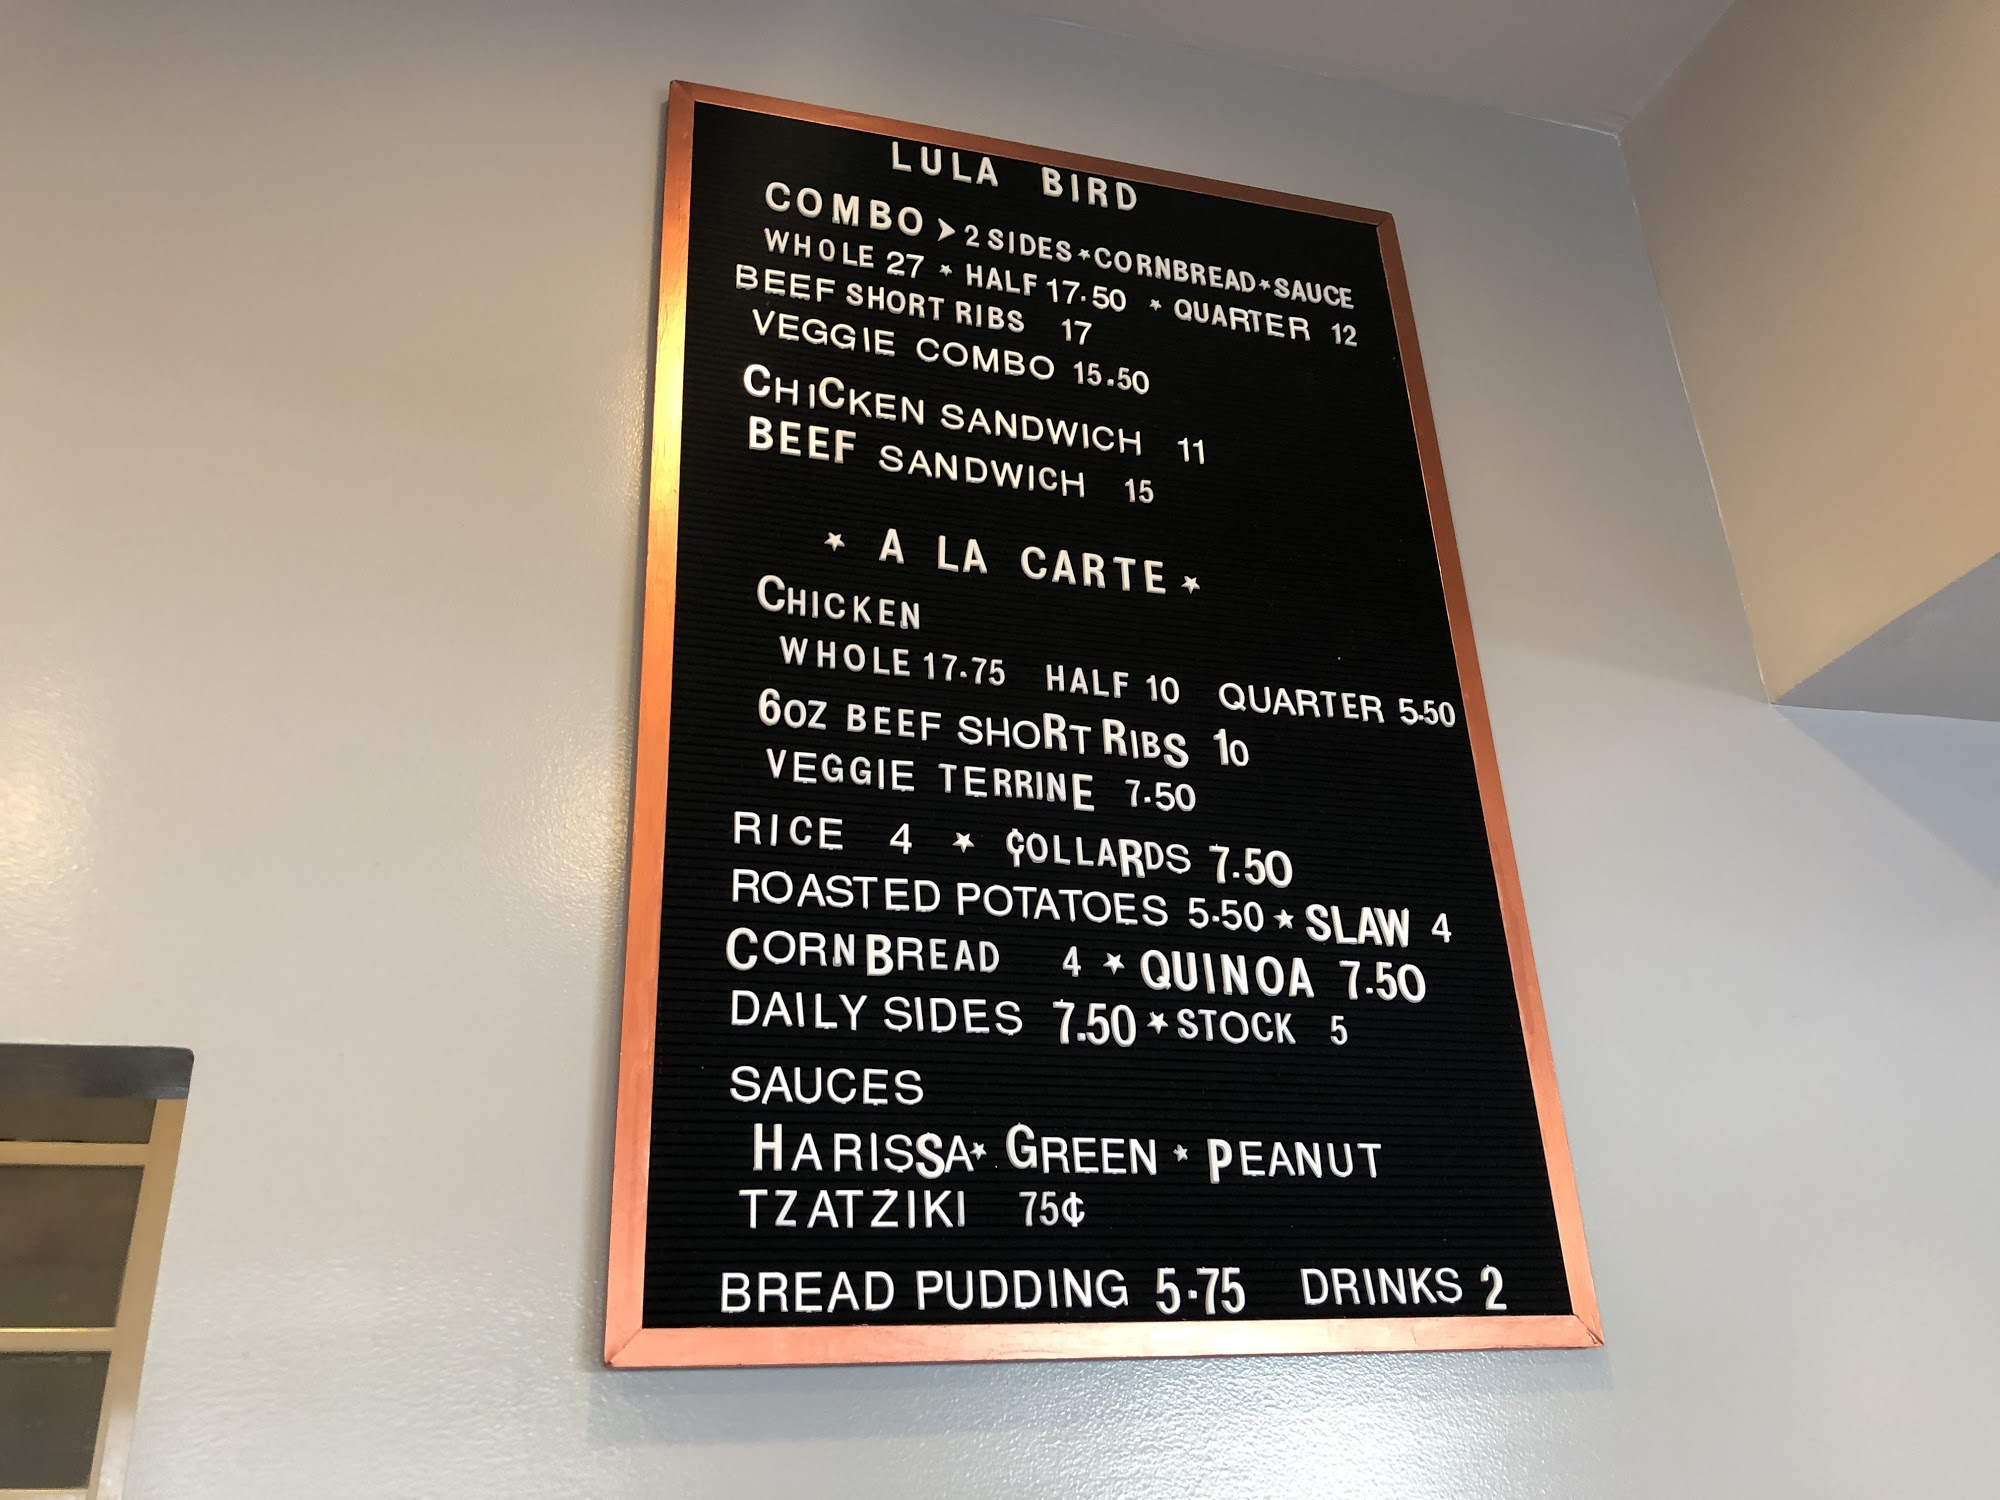 LULA BIRD
COMBO ➤ 2 SIDES ★ CORNBREAD ★ SAUCE
WHOLE 27 ★ HALF 17.50 ★ QUARTER 12
BEEF SHORT RIBS 17
VEGGIE COMBO 15.50
CHiCKEN SANDWICH 11
BEEF SANDWICH 15
★ A LA CARTE ★
CHICKEN
WHOLE 17.75 HALF 10 QUARTER 5.50
6OZ BEEF SHORT RIBS 10
VEGGIE TERRINE 7.50
RICE 4 ★ ¢OLLARDS 7.50
ROASTED POTATOES 5.50 ★ SLAW 4
CORNBREAD 4 ★ QUINOA 7.50
DAILY SIDES 7.50 ★ STOCK 5
SAUCES
HARISSA ★ GREEN ★ PEANUT
TZATZIKI 75¢
BREAD PUDDING 5.75 DRINKS 2